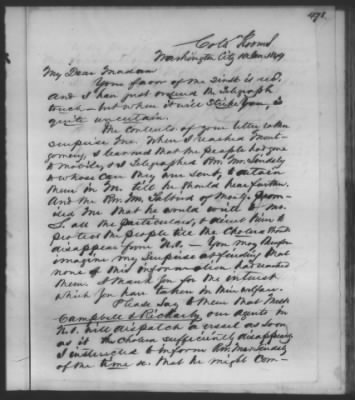 471
Cols Rooms
Washington City 10 Jan 1849
My Dear Madam
Your favor of the inst is recd,
and I have just ordered the Telegraph
touch – but when it will strike you, is
quite uncertain.
The contents of your letter
surprise me. When I reached Mont-
gomery, I learned that the people had gone
to Mobile, & I Telegraphed Rev. Mr.
to whose care they are sent, to detain
them in M. till he should hear further.
And the Rev. Mr. of Montg. prom-
ised me that he would write to Mr.
S. all the particulars, & direct him to
protect the people till the Cholera should
disappear from N.O. – You may then
imagine my surprise at finding that
none of this information had reached
them. I thank you for the interest
which you have taken in their welfare.
Please say to them that Messrs
Campbell & Richards, our agents in
N.O. will dispatch a vessel as soon
as it the cholera sufficiently disappears
I instructed to inform Rev. Mr.
of the time &c. that he might com-